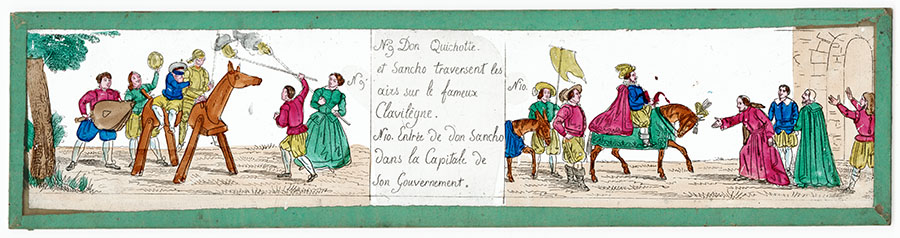 N9 Don Quichotte.
et Sancho traversent les
airs sur le fameux
Clavilègne.
N10. Entrée de don Sancho
dans la Capitale de
son Gouvernement.
N9.
N10.